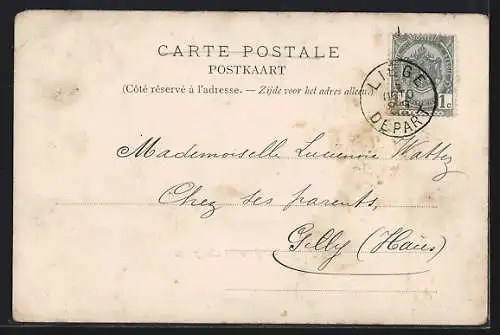 CARTE POSTALE
POSTKAART
(Côté réservé à l'adresse. — Zijde voor het adres alleen.)
LIÈGE
DÉPART
1c
Mademoiselle Lucienne Wattez
Chez ses parents,
Gilly (Haüs)